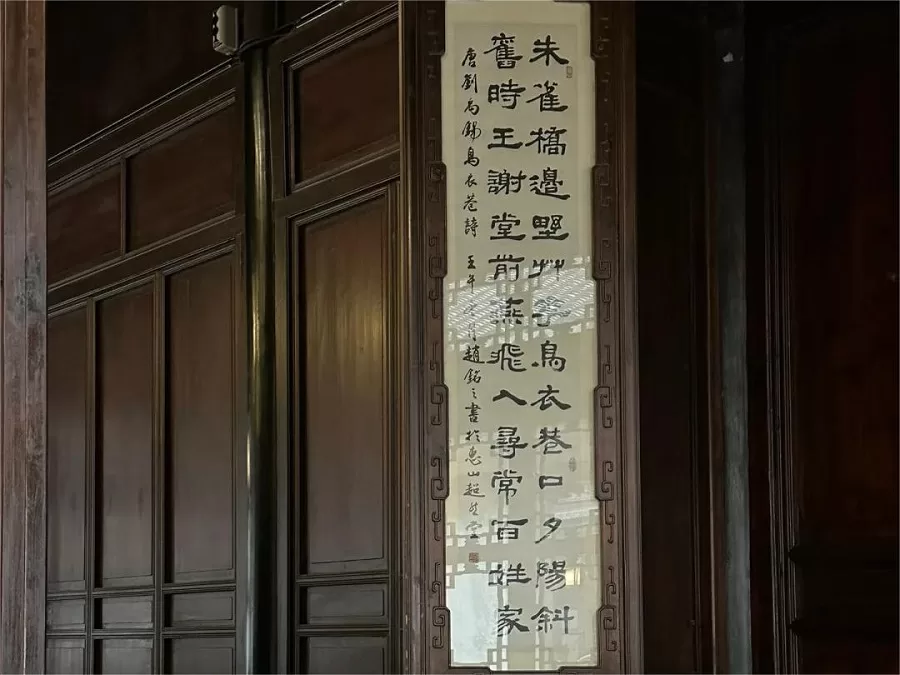 朱雀橋邊野艸花烏衣巷口夕陽斜
舊時王謝堂前燕飛入尋常百姓家
唐劉禹錫烏衣巷詩 壬午 趙銘之書於惠山超然堂